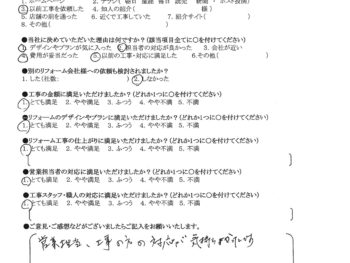 1. ホームページ 2. チラシ( 朝日 産経 毎日 読売 新聞 ・ ポスト投函)
3. 以前工事を依頼した 4. 知人の紹介( 様 )
5. 店舗の前を通った 6. 近くで工事していた 7. 紹介サイト( )
8. その他( )
●当社に決めていただいた理由は何ですか？(該当項目全てに〇を付けてください)
1. デザインやプランが気に入った 2. 担当者の対応が良かった 3. 会社が近い
4. 費用が妥当だった 5. 以前の工事・対応に満足した 6. その他( )
●別のリフォーム会社様への依頼も検討されましたか？
1. した(社数: ) 2. しなかった
●工事の金額に満足いただけましたか？(どれか1つに〇を付けてください)
1. とても満足 2. やや満足 3. ふつう 4. やや不満 5. 不満
●リフォームのデザインやプランに満足いただけましたか？(どれか1つに〇を付けてください)
1. とても満足 2. やや満足 3. ふつう 4. やや不満 5. 不満
●リフォーム工事の仕上がりに満足いただけましたか？(どれか1つに〇を付けてください)
1. とても満足 2. やや満足 3. ふつう 4. やや不満 5. 不満
●営業担当者の対応に満足いただけましたか？(どれか1つに〇を付けてください)
1. とても満足 2. やや満足 3. ふつう 4. やや不満 5. 不満
●工事スタッフ・職人の対応に満足いただけましたか？(どれか1つに〇を付けてください)
1. とても満足 2. やや満足 3. ふつう 4. やや不満 5. 不満
●ご意見・ご感想などがございましたらご記入をお願いいたします。
営業担当、工事の方の対応が気持ち